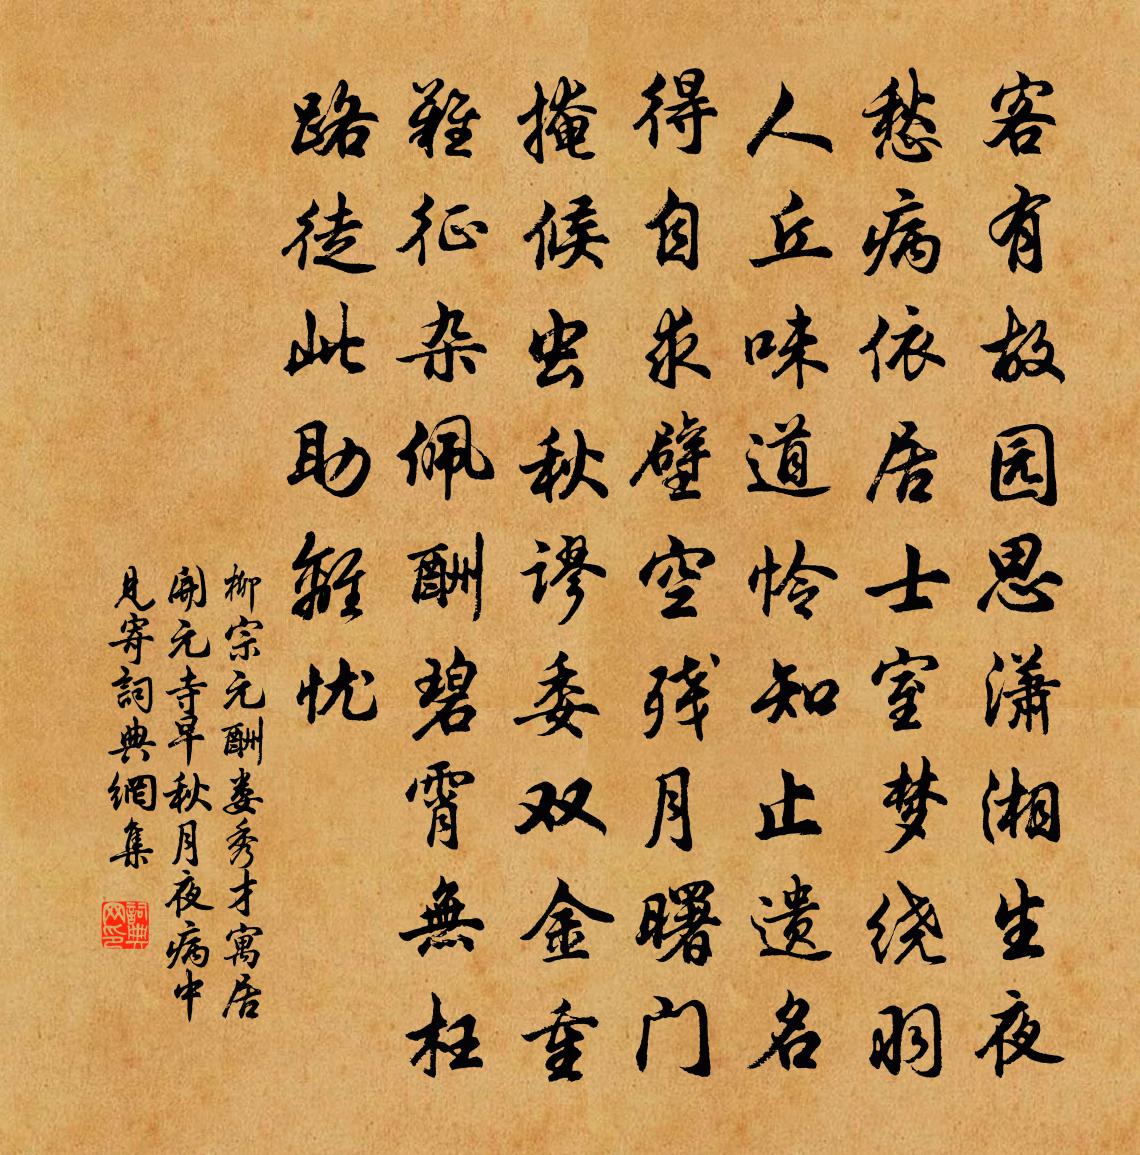 客有故园思潇湘生夜
愁病依居士室梦绕羽
人丘味道怜知止遗名
得自求壁空残月曙门
掩候虫秋谬委双金重
难征杂佩酬碧霄無枉
路徒此助離忧
柳宗元酬娄秀才寓居
開元寺早秋月夜病中
見寄詞典網集
詞典网印